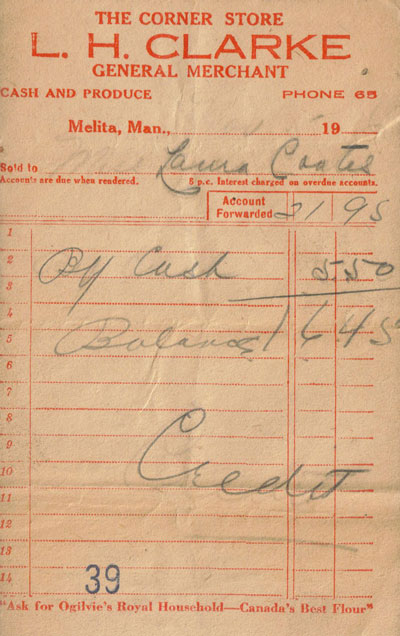 THE CORNER STORE
L. H. CLARKE
GENERAL MERCHANT
CASH AND PRODUCE PHONE 65
Melita, Man., 19
Sold to Laura Coates
Accounts are due when rendered. 8 p.c. Interest charged on overdue accounts.
Account Forwarded 21 95
1
2 By Cash 5 50
3
4
5 Balance 16 45
6
7
8
9
10 Credit
11
12
13
14 39
"Ask for Ogilvie's Royal Household—Canada's Best Flour"